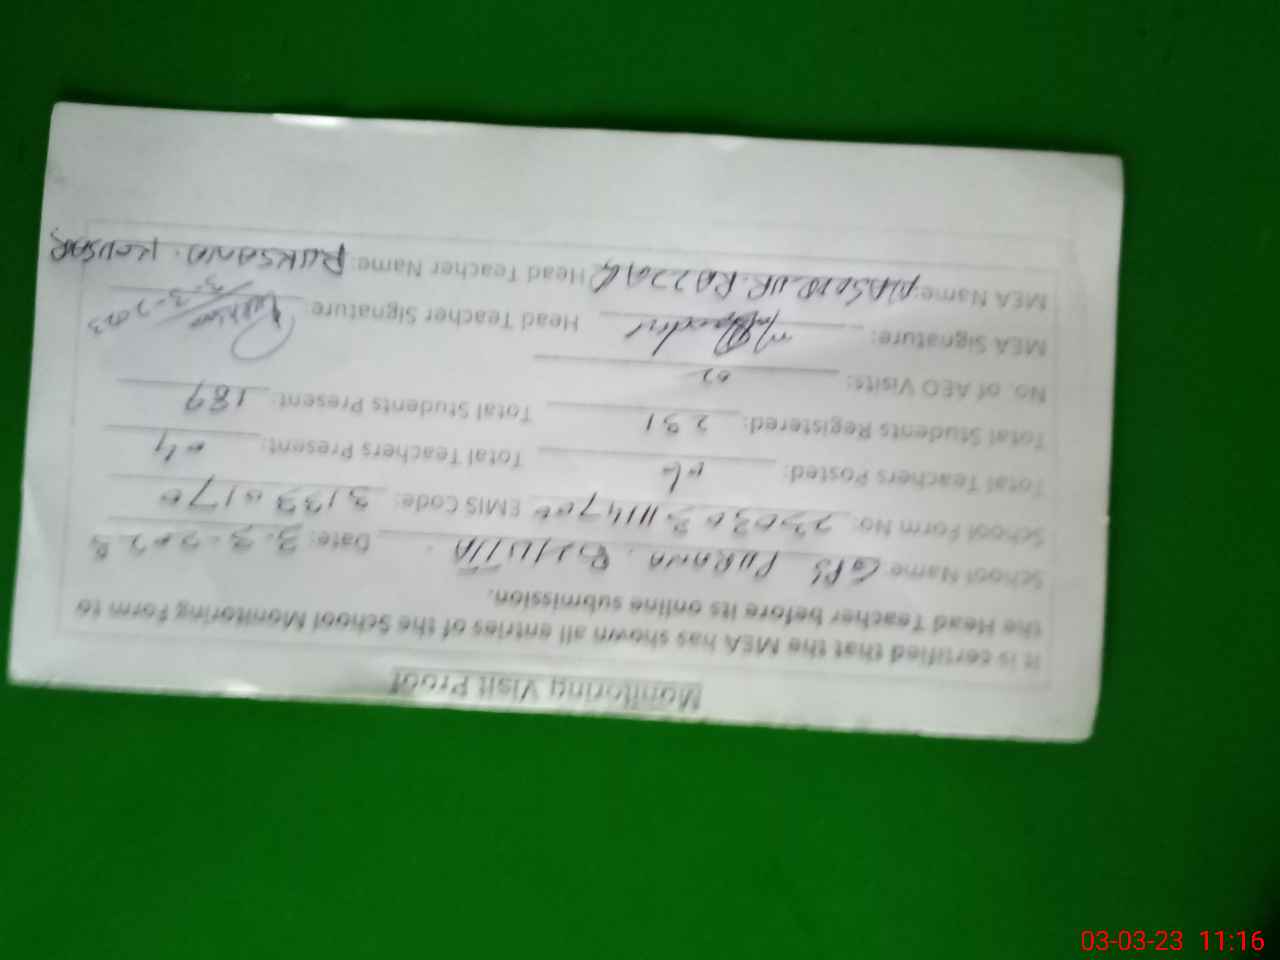 Monitoring Visit Proof
It is certified that the MEA has shown all entries of the School Monitoring Form to
the Head Teacher before its online submission.
School Name: GPS PURANA Date: 3.3.2023
School Form No: EMIS Code: 31330170
Total Teachers Posted: 06 Total Teachers Present: 04
Total Students Registered: 231 Total Students Present: 189
No. of AEO Visits: 02
MEA Signature: Head Teacher Signature: 3-3-2023
MEA Name: UR. RAZZAQ Head Teacher Name: RUKSANA KOUSAR
03-03-23 11:16